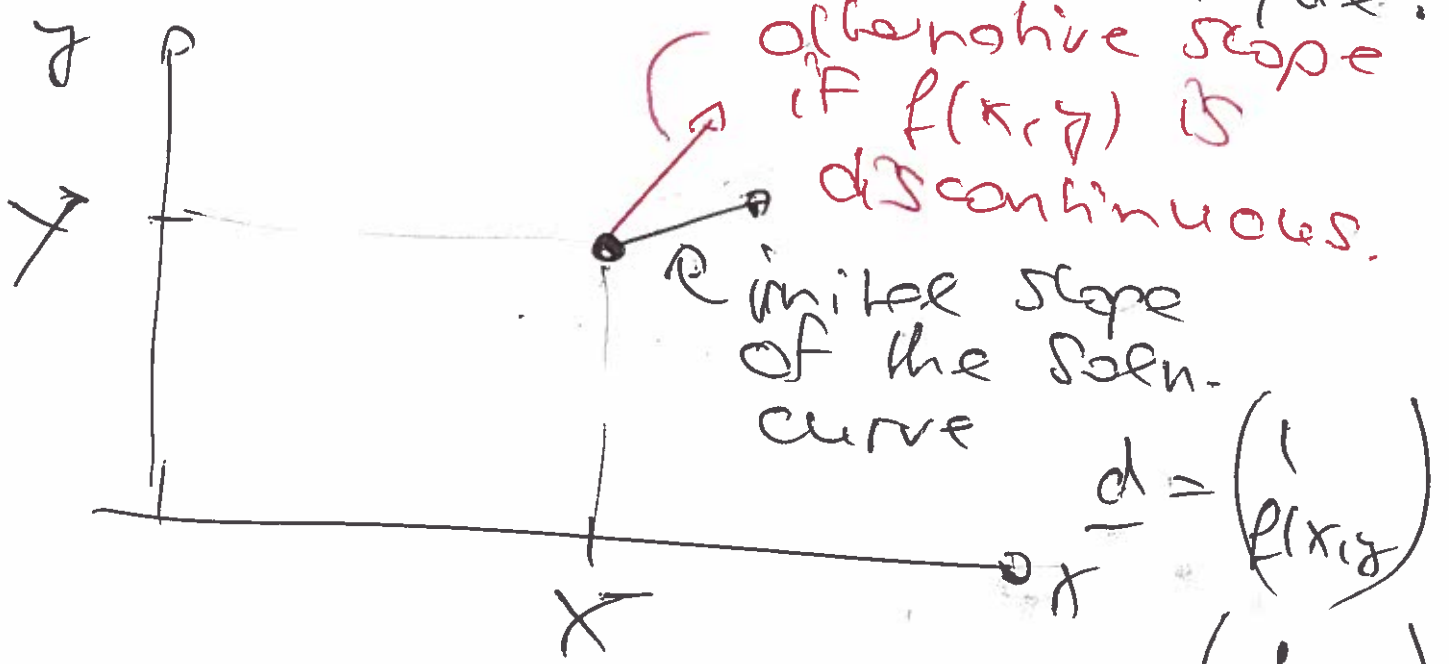 y
alternative slope
if f(x,y) is
discontinuous.
Y
initial slope
of the soln.
curve
d = ( 1
f(x,y )
x
X